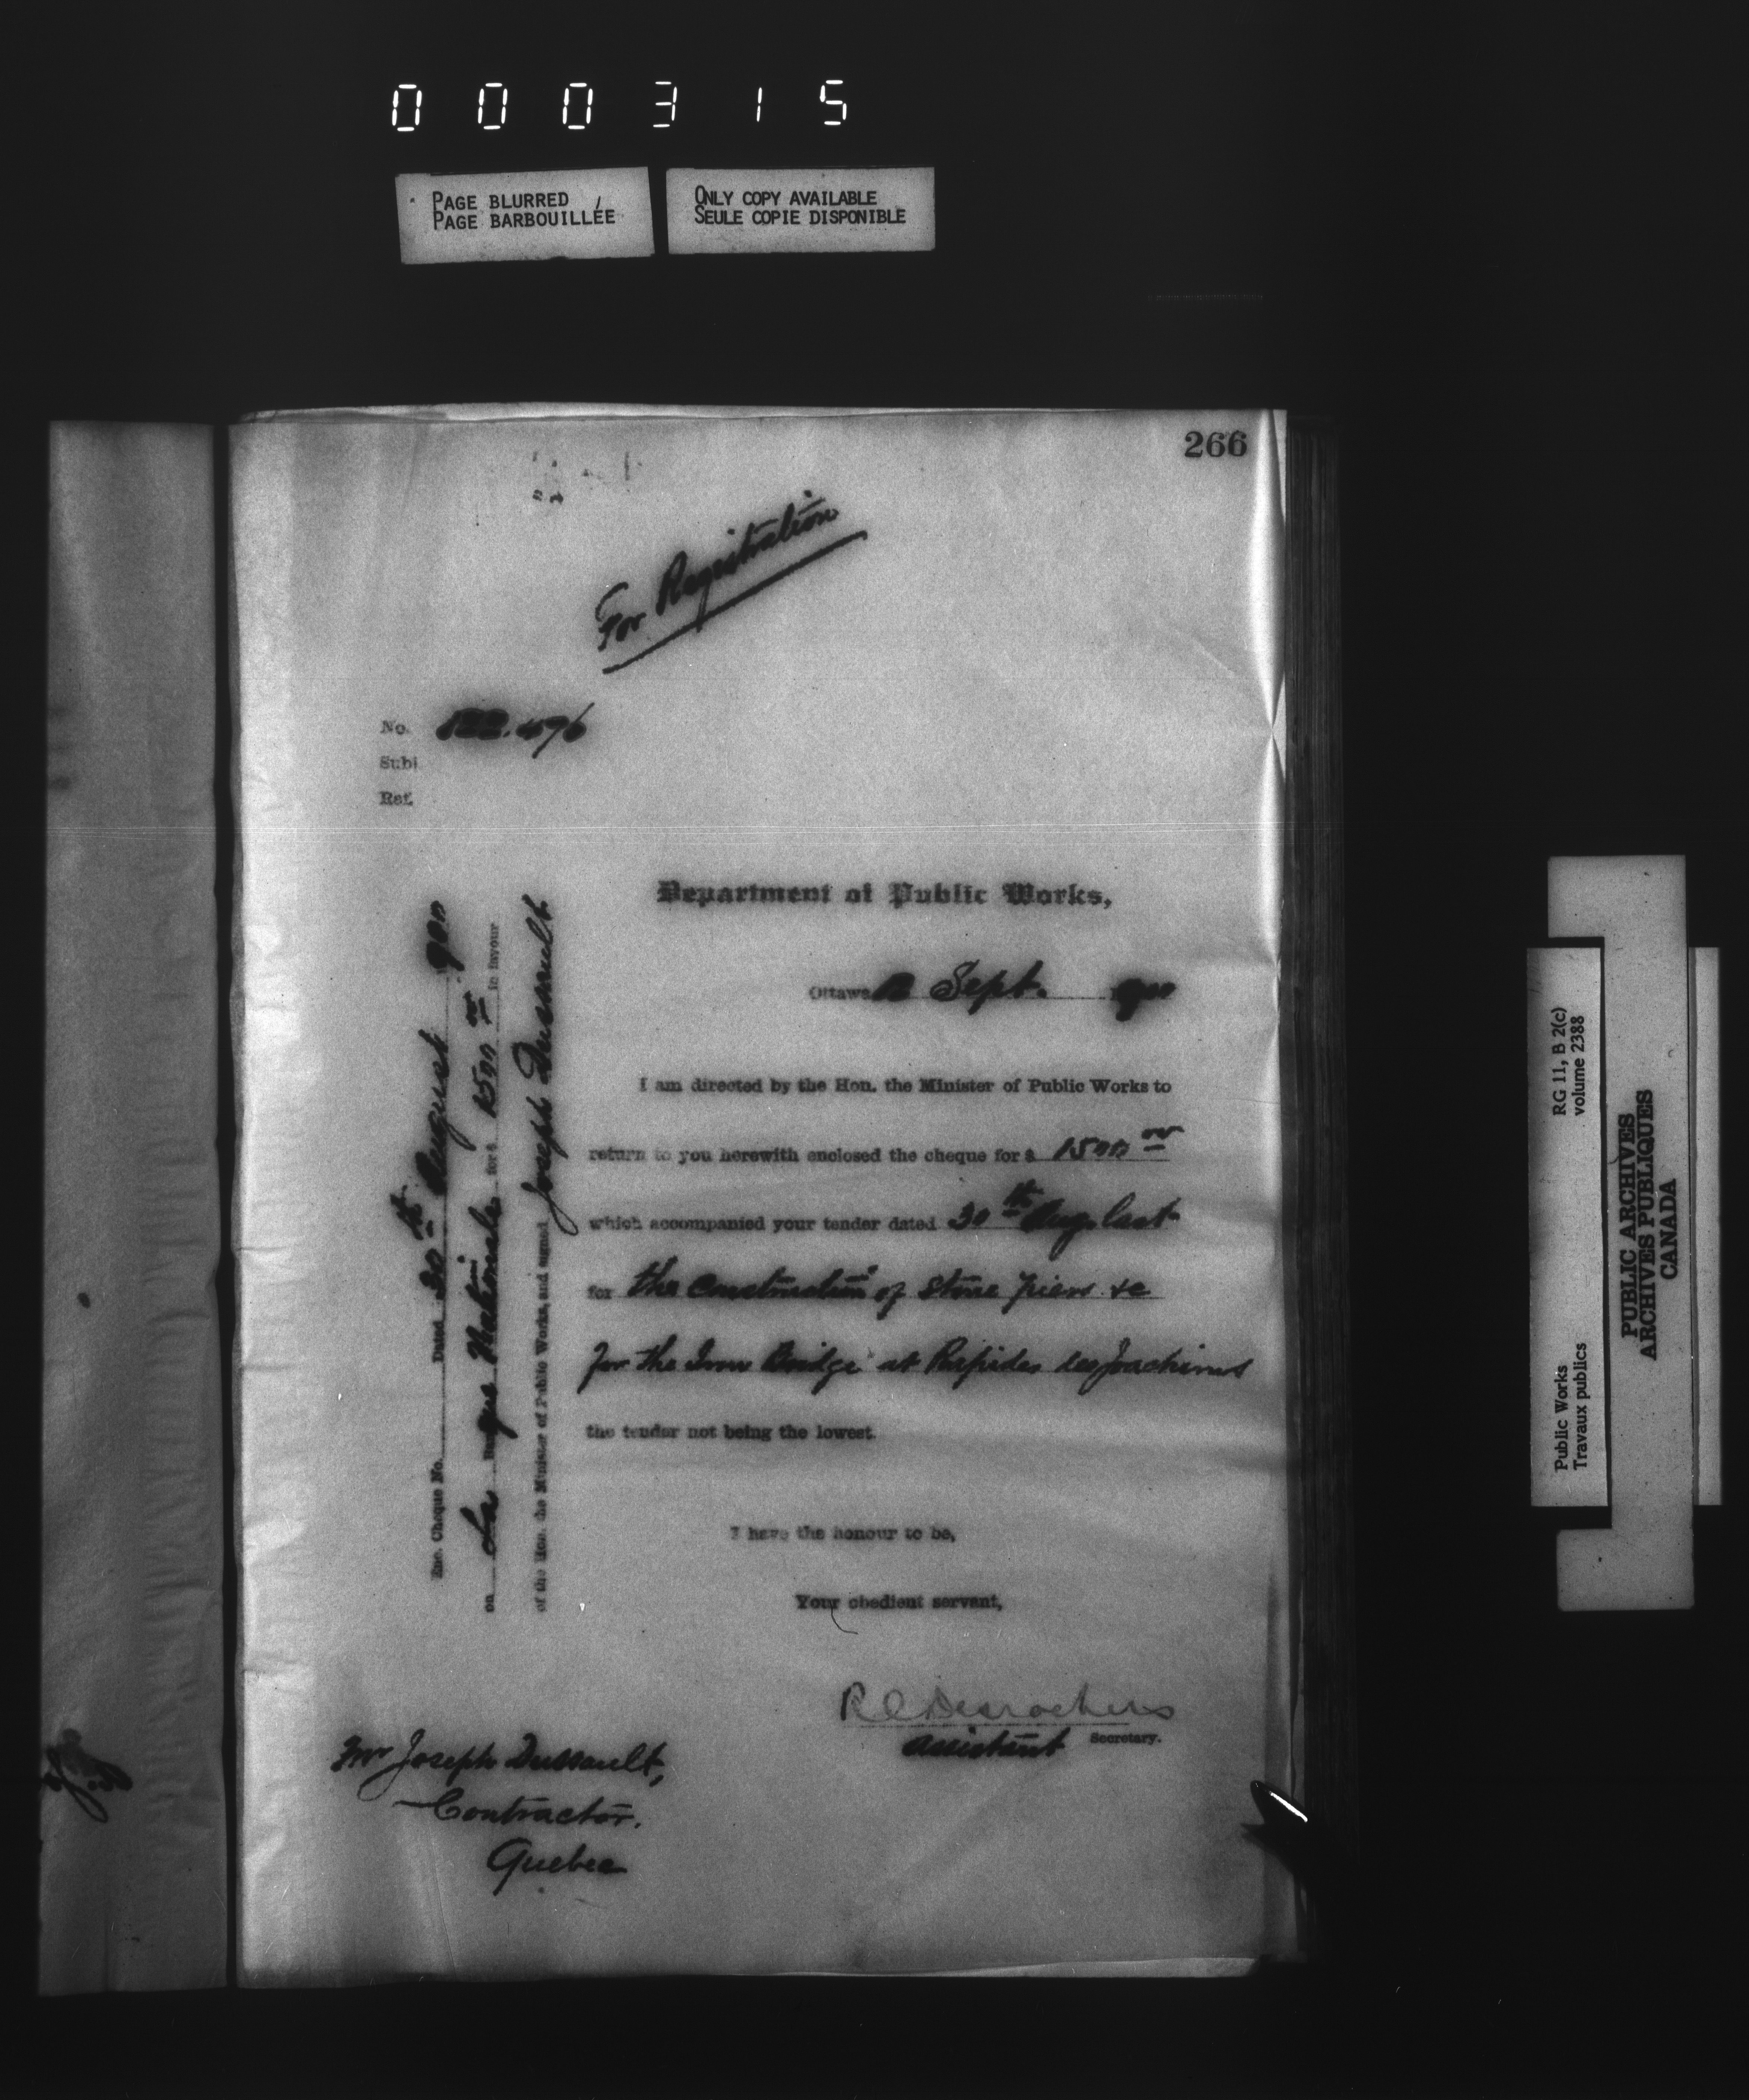 000315
PAGE BLURRED
PAGE BARBOUILLÉE
ONLY COPY AVAILABLE
SEULE COPIE DISPONIBLE
266
For Registration
No. 122.476
Subj
Ref.
Department of Public Works,
Ottawa Sept. 1900
I am directed by the Hon. the Minister of Public Works to
return to you herewith enclosed the cheque for $ 1500 00
which accompanied your tender dated 30th Aug. last
for the construction of stone piers &c
for the Iron Bridge at Rapides des Joachims
the tender not being the lowest.
I have the honour to be,
Your obedient servant,
R C Desrochers
Assistant Secretary.
Mr Joseph Dussault,
Contractor.
Quebec
Enc. Cheque No. Dated 30th August 900
on La Bque Nationale for $ 1500 00 in favour
of the Hon. the Minister of Public Works, and signed Joseph Dussault
Public Works
Travaux publics
RG 11, B 2(c)
volume 2388
PUBLIC ARCHIVES
ARCHIVES PUBLIQUES
CANADA